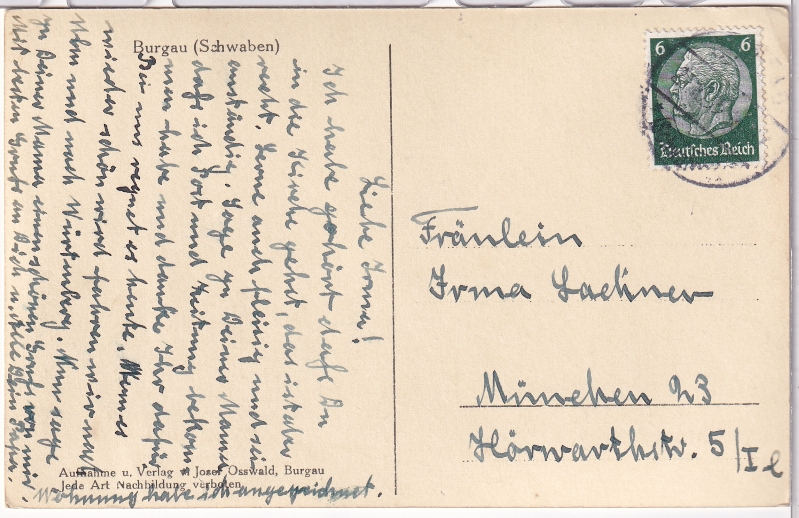 Burgau (Schwaben)
Liebe Irma!
Ich habe gehört daß Du
in die Kirche gehst, das ist sehr
recht. Lerne auch fleißig und sei
anständig. Sage zu Deiner Mama
daß ich Post und Zeitung bekom
men habe und danke Ihr dafür.
Bei uns regnet es heute, Wenn es
wieder schön wird fahren wir nach
Ulm und nach Würtenberg. Nun sage
zu Deiner Mama einen schönen Gruß von mir.
Mit besten Gruß an Dich u. Alle Dein Papa.
Wohnung habe ich angezeichnet.
Aufnahme u. Verlag v. Josef Osswald, Burgau
Jede Art Nachbildung verboten
6 6
Deutsches Reich
Fräulein
Irma Lachner
München 23
Hörwarthstr. 5/I l